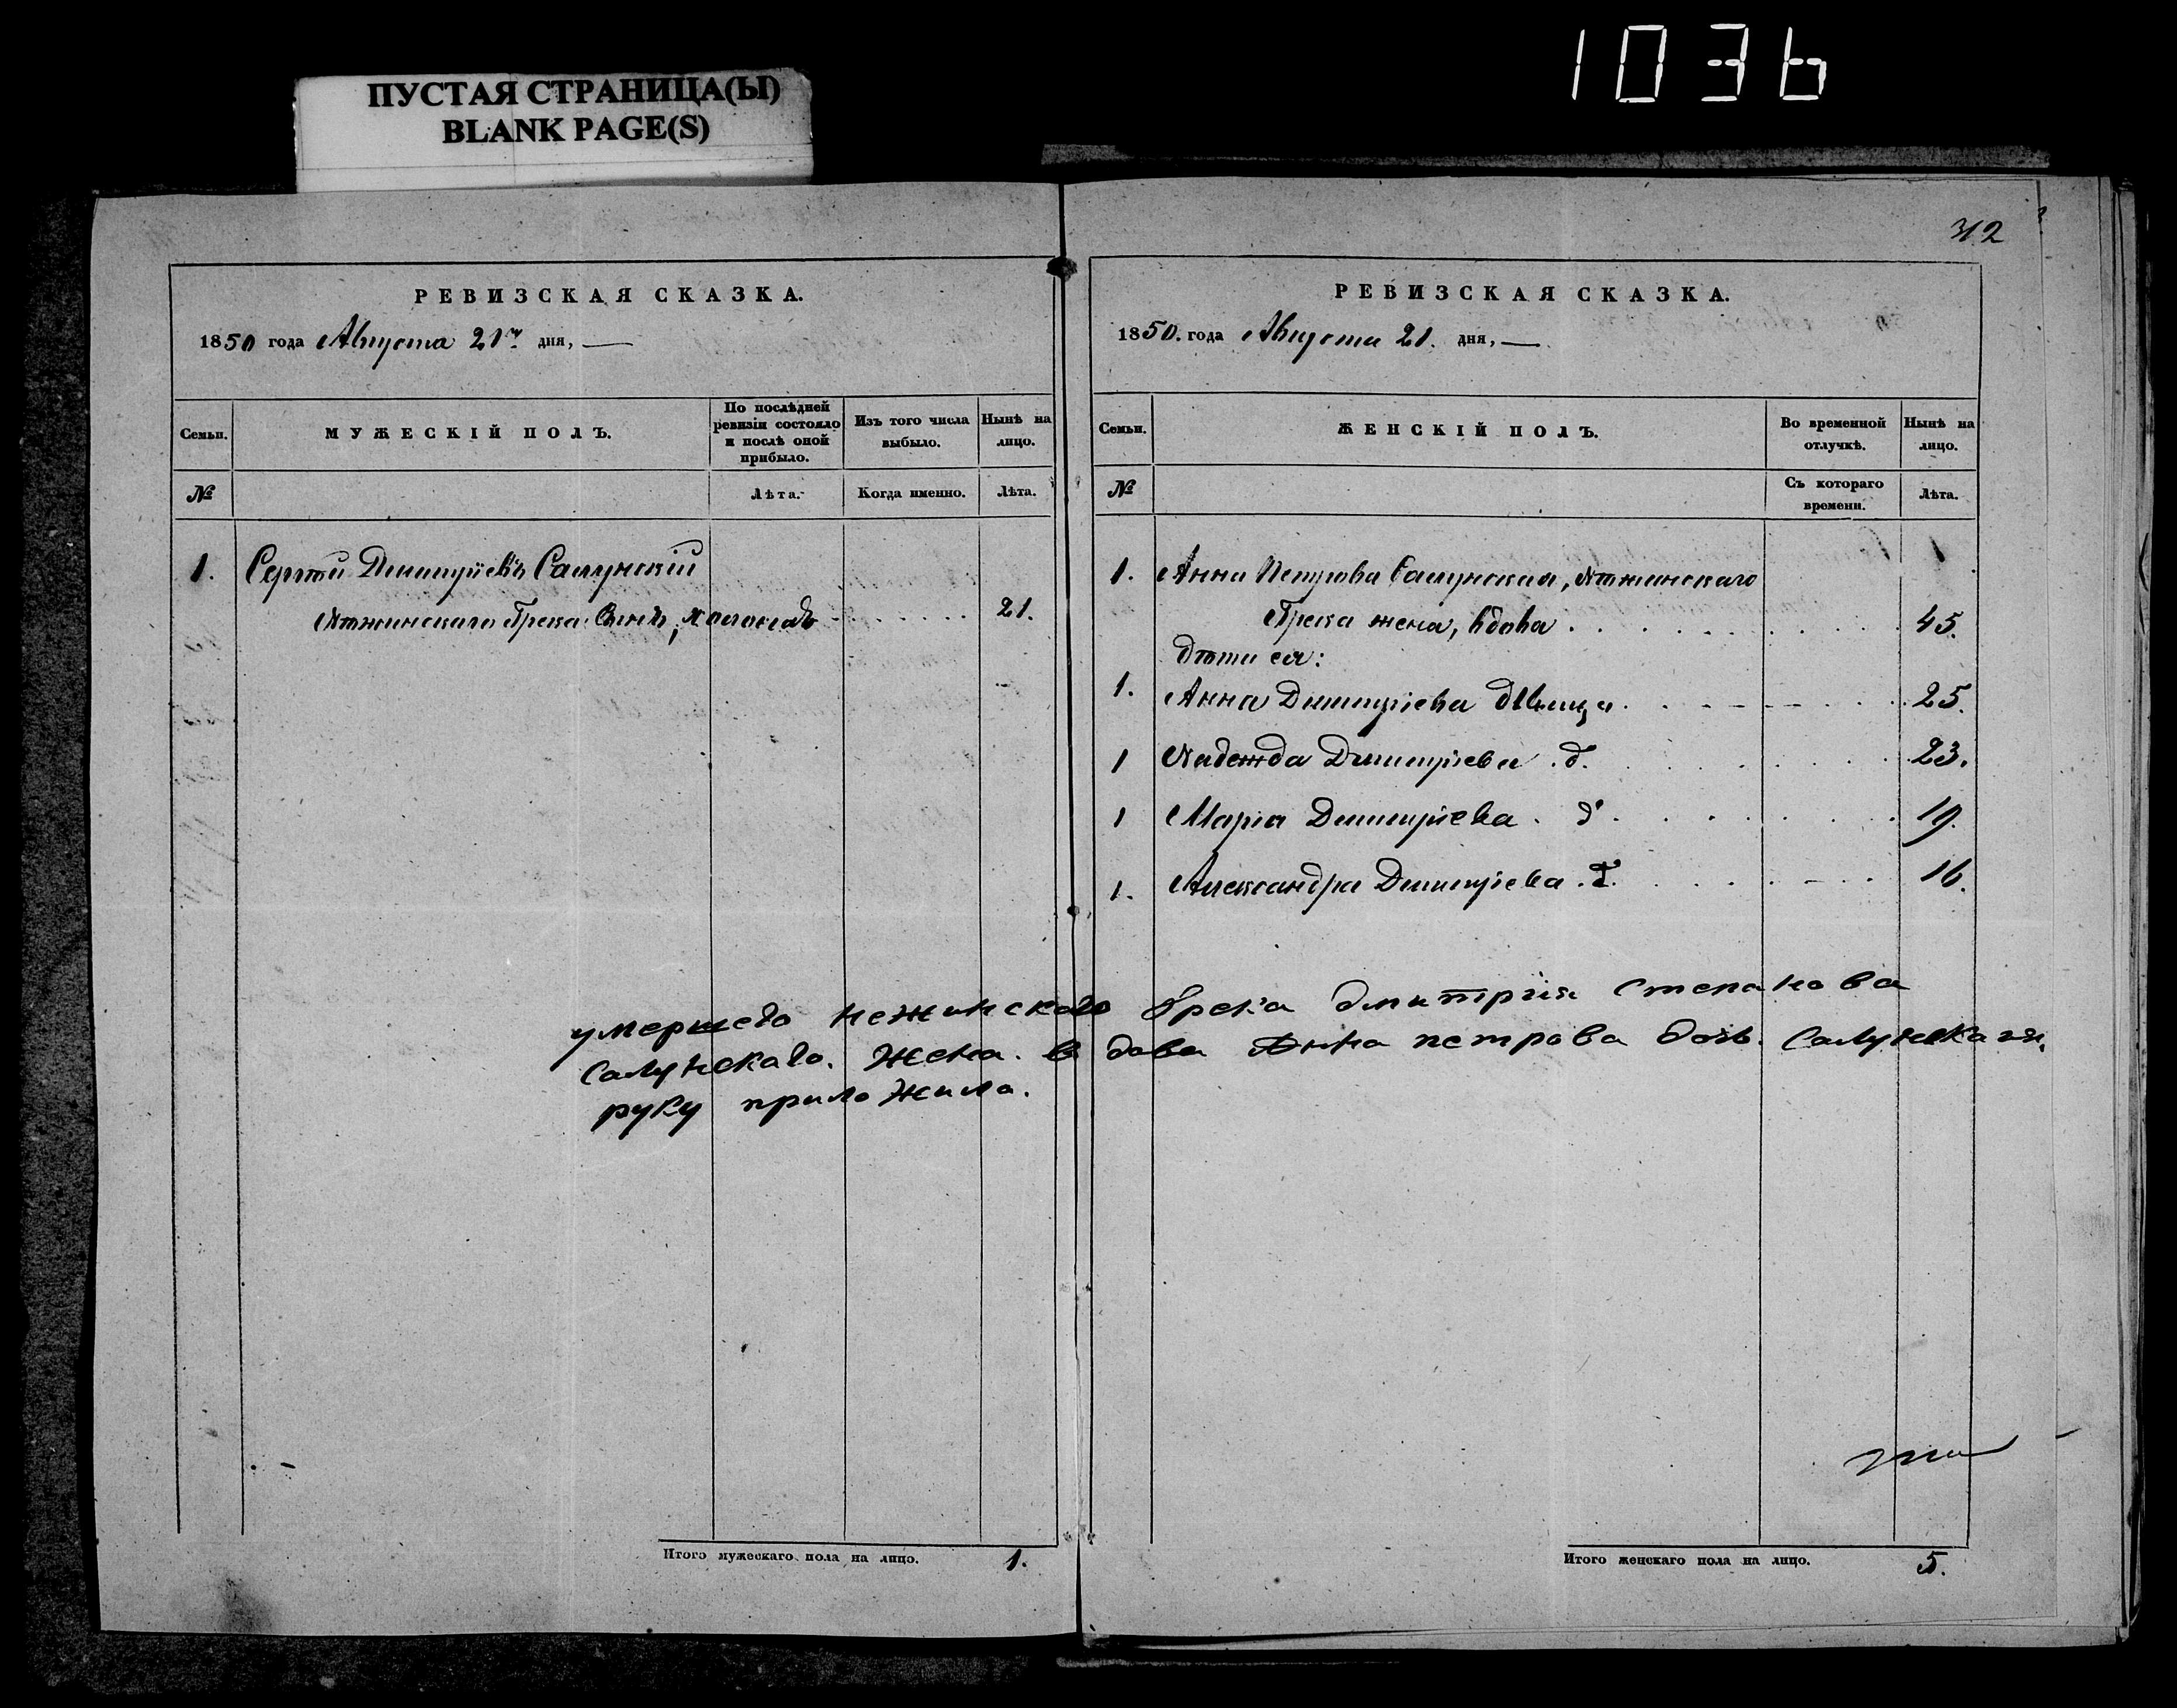 1036
ПУСТАЯ СТРАНИЦА(Ы)
BLANK PAGE(S)
РЕВИЗСКАЯ СКАЗКА.
1850 года Августа 21го дня, —
Семьи.
МУЖЕСКІЙ ПОЛЪ.
По послѣдней ревизіи состояло и послѣ оной прибыло.
Изъ того числа выбыло.
Нынѣ на лицо.
№
Лѣта.
Когда именно.
Лѣта.
1. Сергѣй Димитріевъ Салунскій
Нѣжинскаго Грека Сынъ, холостъ 21.
умершего нежинскаго Грека дмитрия степанова
салунскаго. жена. вдова Анна петрова дочь. салунская.
руку приложила.
Итого мужескаго пола на лицо. 1.
312
РЕВИЗСКАЯ СКАЗКА.
1850. года Августа 21. дня, —
Семьи.
ЖЕНСКІЙ ПОЛЪ.
Во временной отлучкѣ.
Нынѣ на лицо.
№
Съ котораго времени.
Лѣта.
1. Анна Петрова Салунская, Нѣжинскаго
Грека жена, вдова 45.
дѣти ея:
1. Анна Димитріева дѣвица 25.
1 Надежда Димитріева д. 23.
1 Марія Димитріева. д. 19.
1. Александра Димитріева. д. 16.
Итого женскаго пола на лицо. 5.